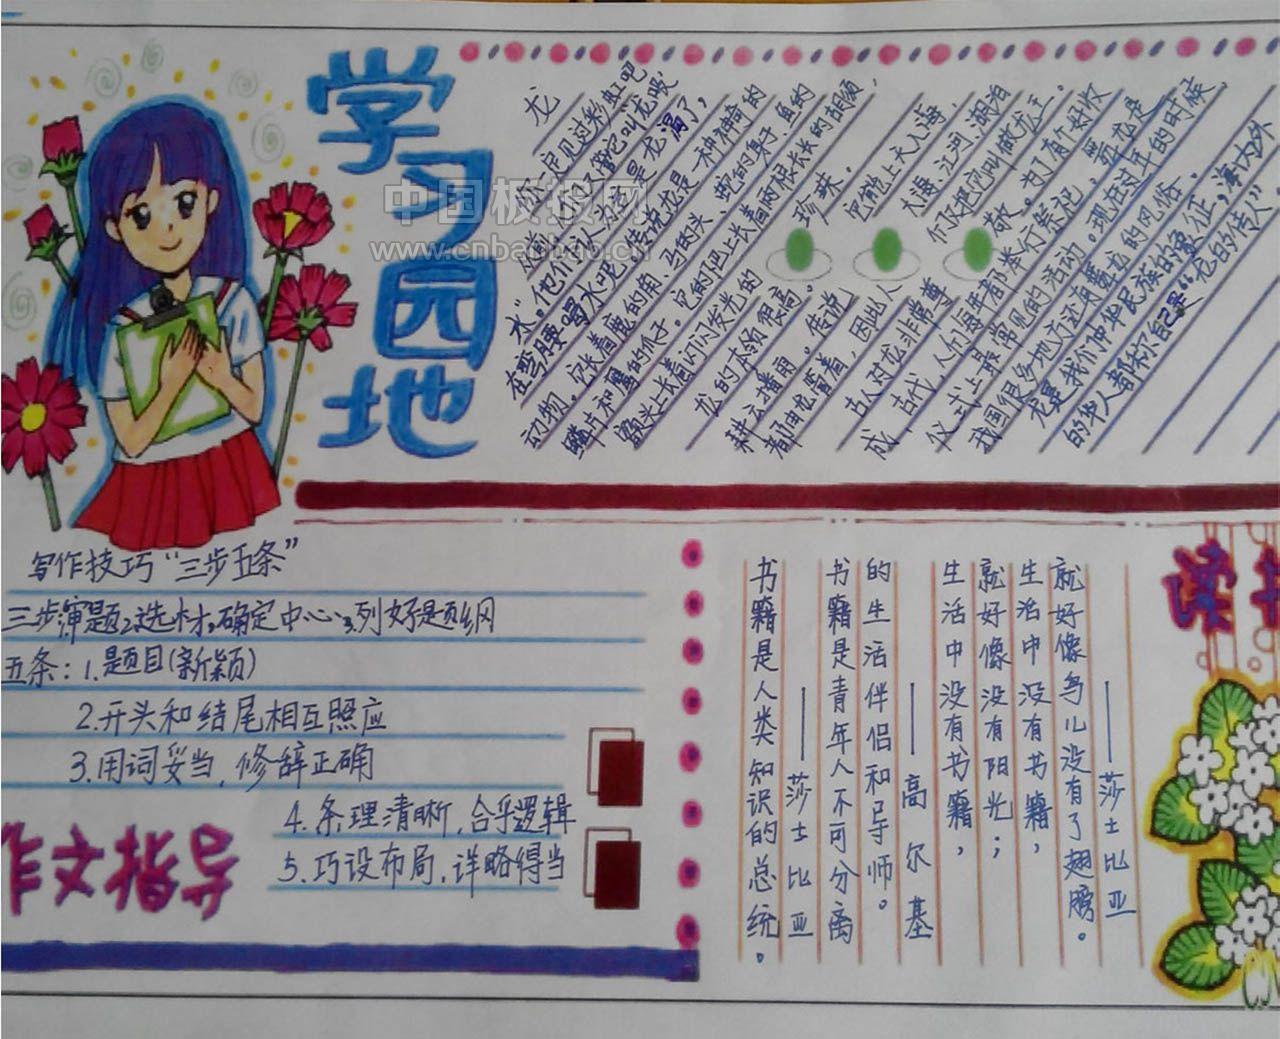 学习园地
中国板报网
www.cnbanbao.cn
龙
你一定见过彩虹吧
水。他们
动物。它长着鹿的角、马的头、蛇的身子、鱼的
鳞片和鹰的爪子。它的嘴巴上长着两根长长的胡须，
额头上长着闪闪发光的
珍珠。
龙的本领很高。
它能上天入海，
耕云播雨。传说
大海、江河、湖泊
都由龙管着，因此人
们把它叫做龙王。
古人对龙非常尊
敬。为了有个好收
成，古代人们每年都举行祭祀，舞龙是
仪式上最常见的活动。现在过年的时候，
我国很多地方还有舞龙的风俗。
龙是我们中华民族的象征，海内外
的华人都称自己是“龙的传人”
写作技巧“三步五条”
三步审题2.选材，确定中心、3.列好提纲
五条：1.题目(新颖)
2.开头和结尾相互照应
3.用词妥当，修辞正确
4.条理清晰，合乎逻辑
5.巧设布局，详略得当
作文指导
书籍是人类知识的总统。
——莎士比亚
书籍是青年人不可分离
的生活伴侣和导师。
——高尔基
生活中没有书籍，
就好像没有阳光；
生活中没有书籍，
就好像鸟儿没有了翅膀。
——莎士比亚
读书